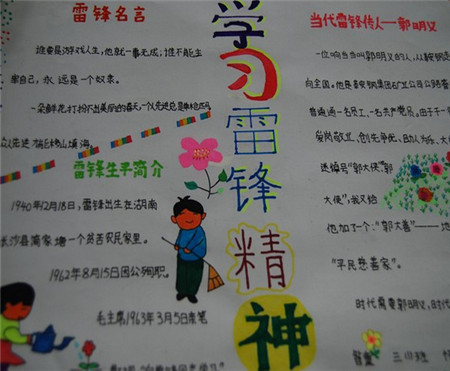 雷锋名言
谁要是游戏人生,他就一事无成;谁不能主
宰自己,永远是一个奴隶。
一朵鲜花打扮不出美丽的春天,一个人先进总是单枪匹马
众人先进才能移山填海。
雷锋生平简介
1940年12月18日,雷锋出生在湖南
长沙县简家塘一个贫苦农民家里。
1962年8月15日因公殉职。
毛主席1963年3月5日亲笔
学习雷锋精神
当代雷锋传人—郭明义
一位响当当叫郭明义的人,从鞍钢走
向全国。他是鞍钢集团矿业公司公路
普通通一名员工,一名共产党员。由于
爱岗敬业,创先争优,助人为乐,大
送绰号"郭大侠""郭
大侠",我又给
他加了一个:"郭大善"——地
"平民慈善家"。
时代需要郭明义,时代
三(1)班